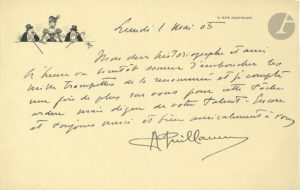 Lundi 1 Mai 05
Mon cher historiographe et ami
L'heure va bientôt sonner d'emboucher les
mille trompettes de la renommée et je compte
une fois de plus sur vous pour cette tâche
ardue mais digne de votre talent. Encore
et toujours merci et bien amicalement à vous
AGuillaume